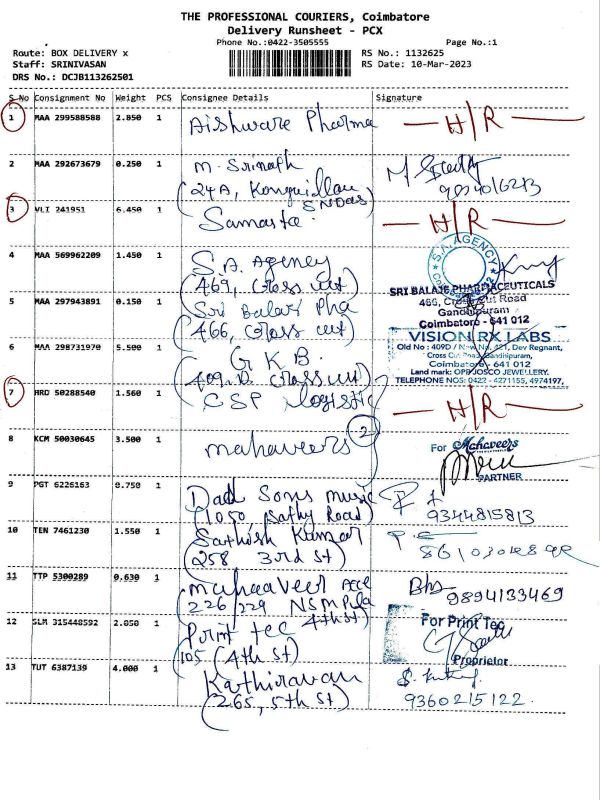 THE PROFESSIONAL COURIERS, Coimbatore
Delivery Runsheet - PCX
Phone No.:0422-3505555
Page No.:1
Route: BOX DELIVERY x
RS No.: 1132625
Staff: SRINIVASAN
RS Date: 10-Mar-2023
DRS No.: DCJB113262501
S No Consignment No Weight PCS Consignee Details Signature
1 MAA 299588588 2.850 1 Aishware Pharma H/R
2 MAA 292673679 0.250 1 M. Srinath
(24A,
3 VLI 241951 6.450 1 Samasta. H/R
4 MAA 569962209 1.450 1 S.A. Agency
(469, Cross cut)
S.A. AGENCY
5 MAA 297943891 0.150 1 Sri Balaji Pha
(466, Cross cut)
SRI BALAJI PHARMACEUTICALS
466, Cross Cut Road
Gandhipuram
Coimbatore - 641 012
6 MAA 298731970 5.500 1 G K B.
(409.D. Cross cut)
VISION RX LABS
Old No : 409D / New No. 421, Dev Regnant,
Cross Cut Road, Gandhipuram,
Coimbatore - 641 012
Land mark: OPP. JOSCO JEWELLERY.
TELEPHONE NOS: 0422 - 4271155, 4974197,
7 HRD 50288540 1.560 1 CSP Logistic H/R
8 KCM 50030645 3.500 1 mahaveers 2
For Mahaveers
PARTNER
9 PGT 6226163 0.750 1 Dad Sons music
(1050 Sathy Road)
9344815813
10 TEN 7461230 1.550 1 Sathish Kumar
(258 3rd St)
11 TTP 5300289 0.630 1 mahaaveer
226/229
4th St)
9894133469
12 SLM 315448592 2.050 1 Print tec
105 (4th St)
For Print Tec
Proprietor
13 TUT 6387139 4.000 1 Kathiravan
(265, 5th St)
9360215122.